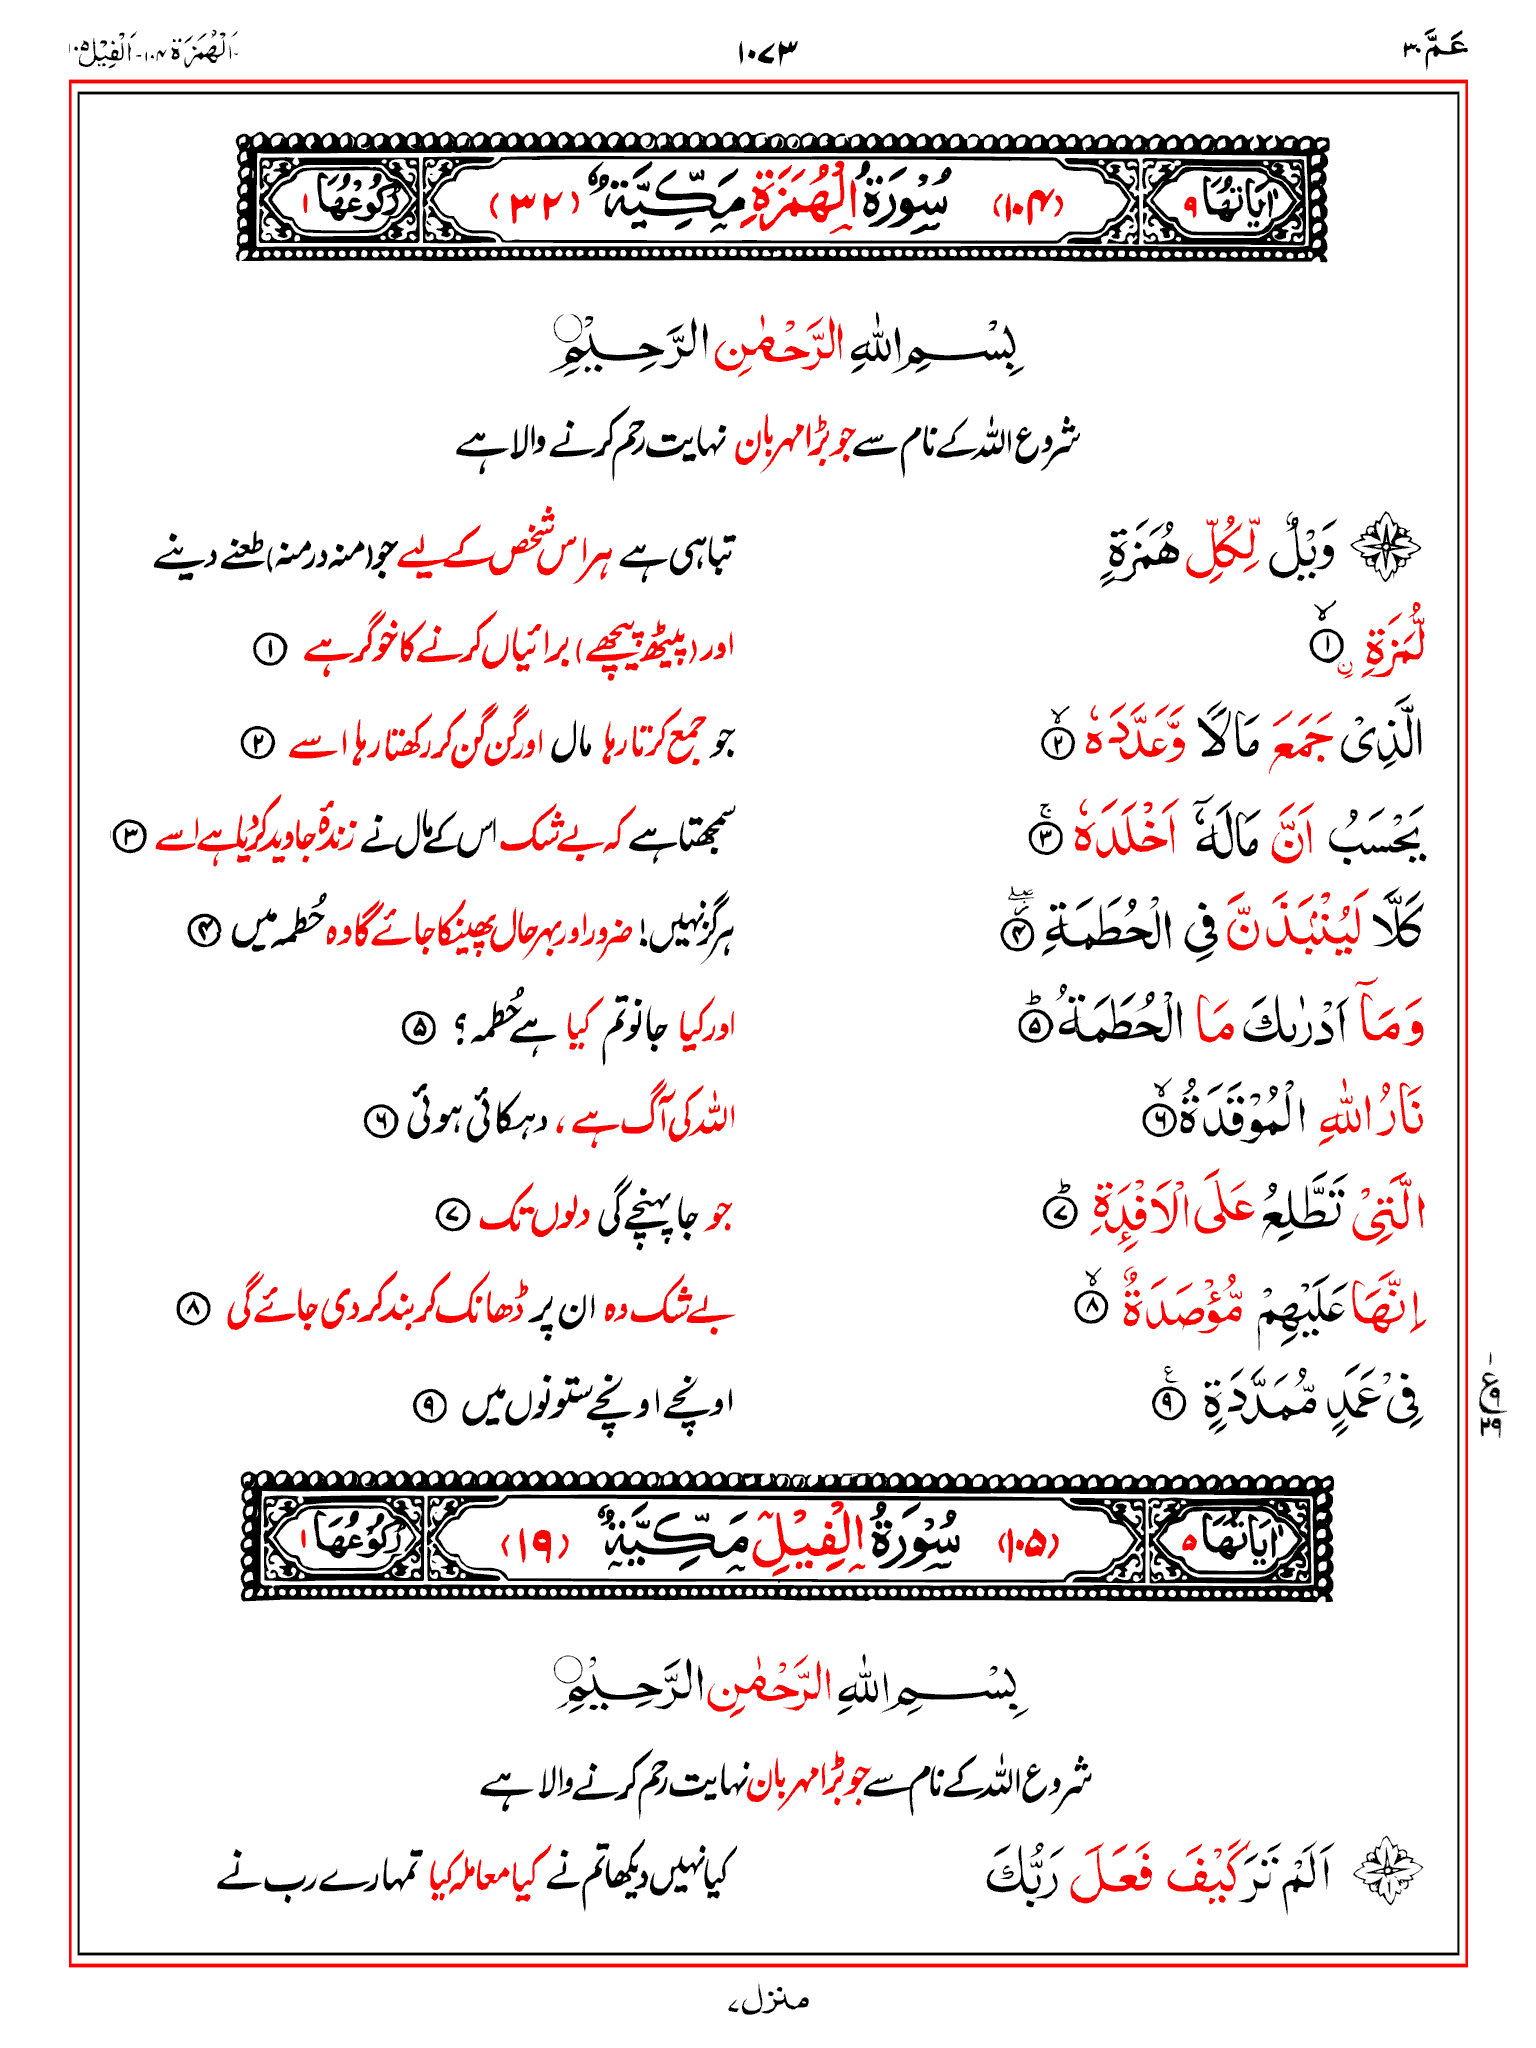 عَمَّ ۳۰ ۱۰۷۳ اَلْهُمَزَة ۱۰۴- اَلْفِيْل ۱۰۵
اٰيَاتُهَا ۹ (۱۰۴) سُوْرَةُ الْهُمَزَةِ مَكِّيَّةٌ (۳۲) رُكُوْعُهَا ۱
بِسْمِ اللّٰهِ الرَّحْمٰنِ الرَّحِيْمِ ○
شروع اللہ کے نام سے جو بڑا مہربان نہایت رحم کرنے والا ہے
وَيْلٌ لِّكُلِّ هُمَزَةٍ تباہی ہے ہر اس شخص کے لیے جو (منہ در منہ) طعنے دینے
لُّمَزَةِ ۣۙ ۱ اور (پیٹھ پیچھے) برائیاں کرنے کا خوگر ہے ۱
الَّذِيْ جَمَعَ مَالًا وَّعَدَّدَهٗ ۙ ۲ جو جمع کرتا رہا مال اور گن گن کر رکھتا رہا اسے ۲
يَحْسَبُ اَنَّ مَالَهٗٓ اَخْلَدَهٗ ۚ ۳ سمجھتا ہے کہ بے شک اس کے مال نے زندۂ جاوید کر دیا ہے اسے ۳
كَلَّا لَيُنْۢبَذَنَّ فِي الْحُطَمَةِ ۖ ۴ ہرگز نہیں! ضرور اور بہر حال پھینکا جائے گا وہ حُطمہ میں ۴
وَمَآ اَدْرٰىكَ مَا الْحُطَمَةُ ؕ ۵ اور کیا جانو تم کیا ہے حُطمہ؟ ۵
نَارُ اللّٰهِ الْمُوْقَدَةُ ۙ ۶ اللہ کی آگ ہے، دہکائی ہوئی ۶
الَّتِيْ تَطَّلِعُ عَلَى الْاَفْـِٕدَةِ ؕ ۷ جو جا پہنچے گی دلوں تک ۷
اِنَّهَا عَلَيْهِمْ مُّؤْصَدَةٌ ۙ ۸ بے شک وہ ان پر ڈھانک کر بند کر دی جائے گی ۸
فِيْ عَمَدٍ مُّمَدَّدَةٍ ۠ ۹ اونچے اونچے ستونوں میں ۹
۱ ع ۹ ۲۹
اٰيَاتُهَا ۵ (۱۰۵) سُوْرَةُ الْفِيْلِ مَكِّيَّةٌ (۱۹) رُكُوْعُهَا ۱
بِسْمِ اللّٰهِ الرَّحْمٰنِ الرَّحِيْمِ ○
شروع اللہ کے نام سے جو بڑا مہربان نہایت رحم کرنے والا ہے
اَلَمْ تَرَ كَيْفَ فَعَلَ رَبُّكَ کیا نہیں دیکھا تم نے کیا معاملہ کیا تمہارے رب نے
منزل ۷